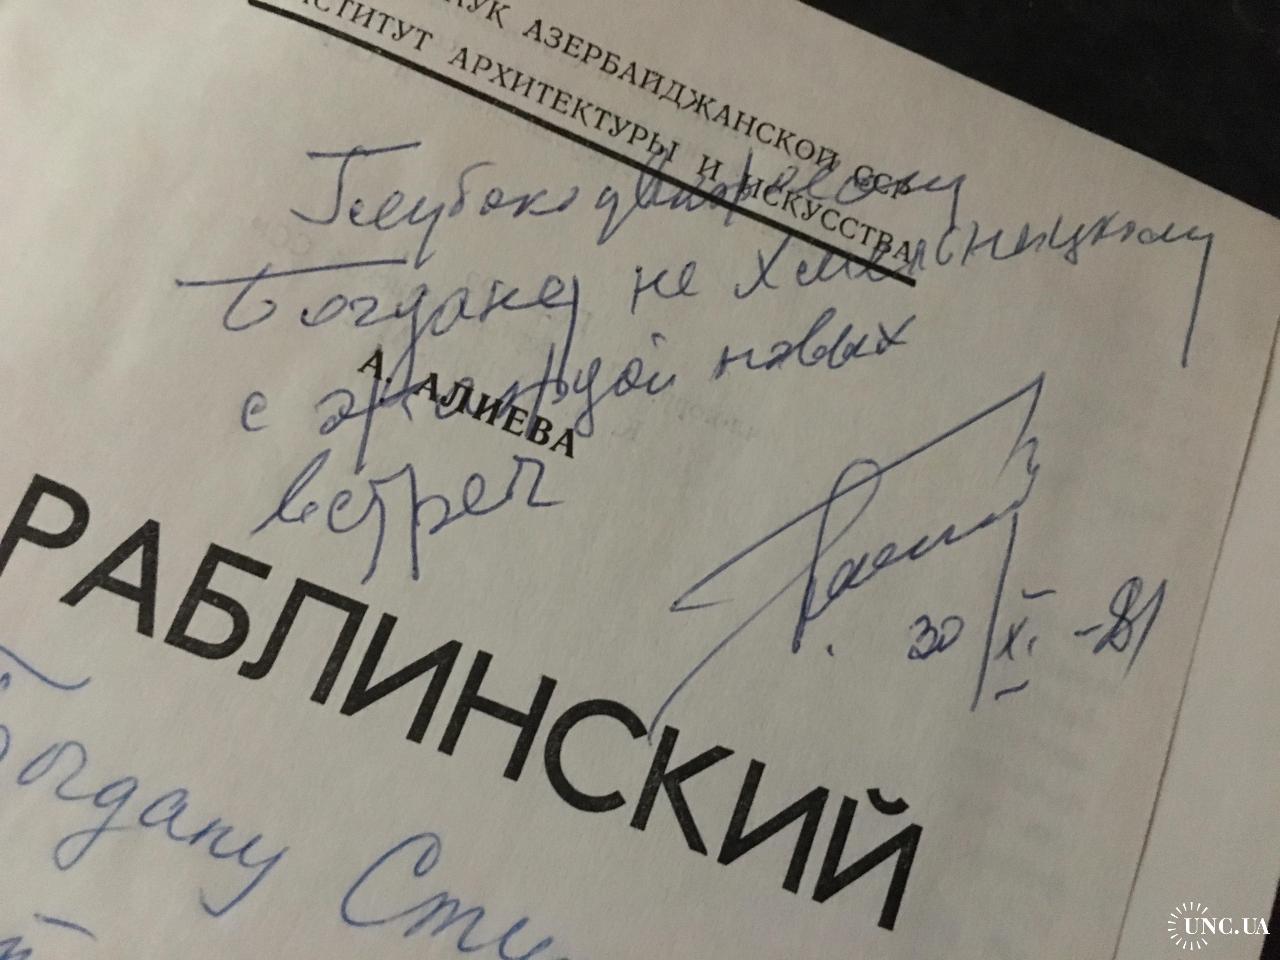 АУК АЗЕРБАЙДЖАНСКОЙ ССР
НСТИТУТ АРХИТЕКТУРЫ И ИСКУССТВА
Глубокоуважаемому
Богдану не Хмельницкому
с жаждой новых
встреч
30 XI -81
А. АЛИЕВА
РАБЛИНСКИЙ
Богдану
UNC.UA